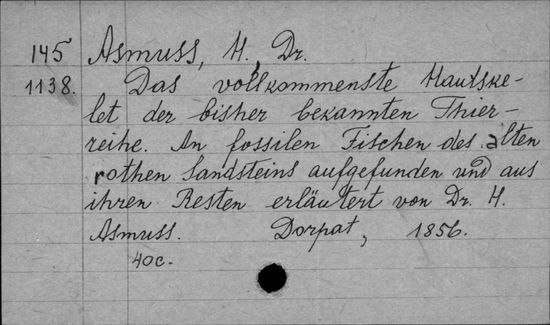 145 Asmuss, H., Dr.
1138. Das vollkommenste Hautske-
let der bisher bekannten Thier-
reihe. An fossilen Fischen des alten
rothen Sandsteins aufgefunden und aus
ihren Resten erläutert von Dr. H.
Asmuss. Dorpat, 1856.
40c.